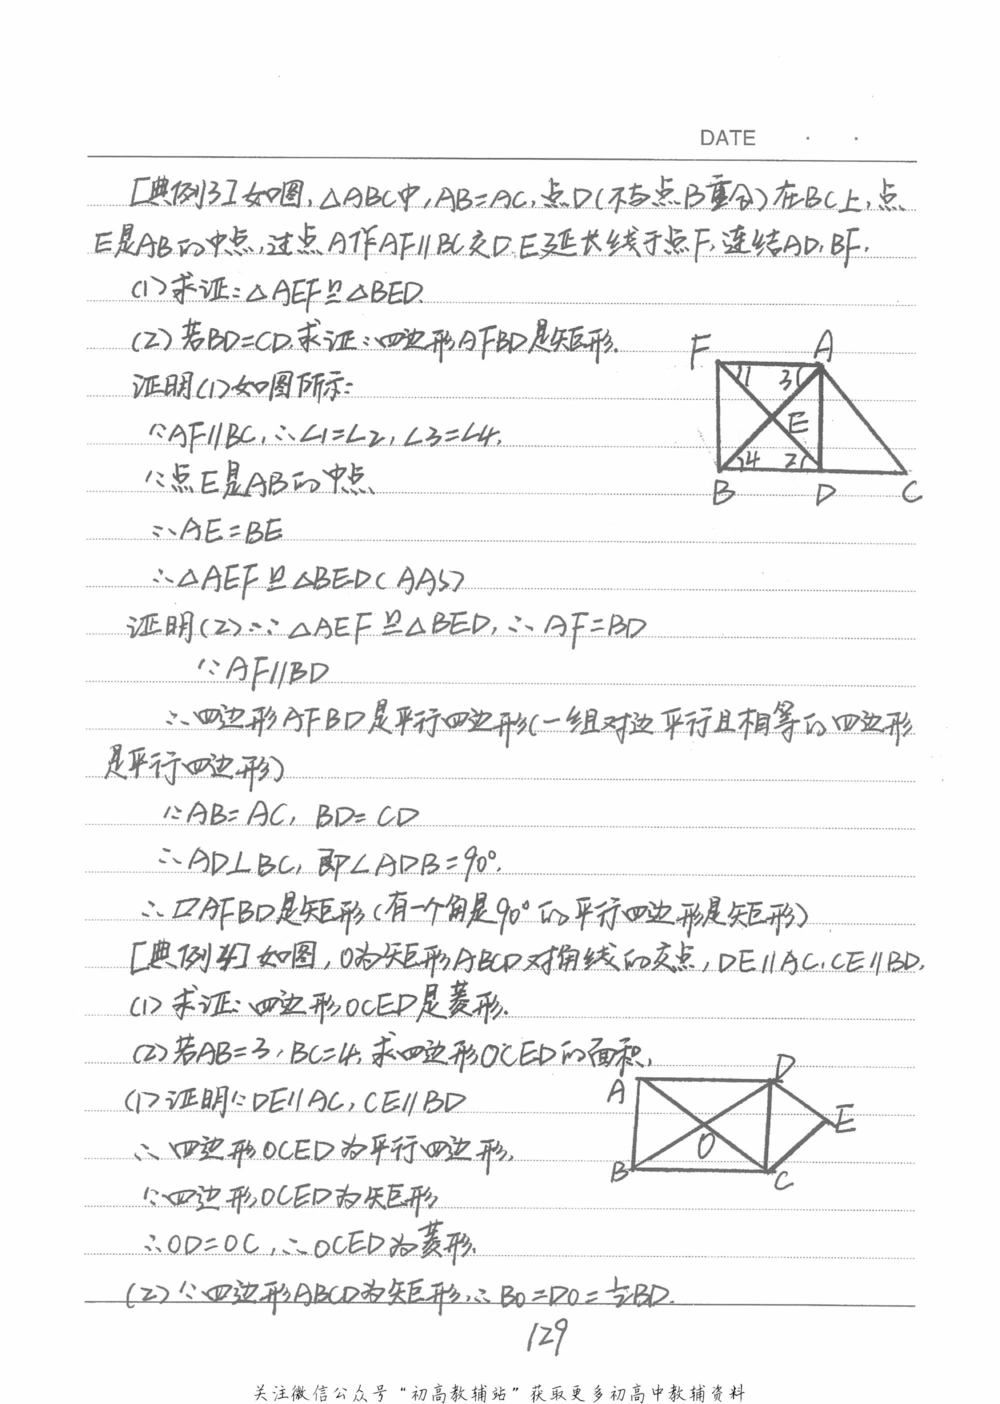 DATE · ·
[典例3]如图,△ABC中,AB=AC,点D(不与点B重合)在BC上,点
E是AB的中点,过点A作AF∥BC交DE延长线于点F,连结AD,BF.
(1)求证:△AEF≌△BED.
(2)若BD=CD,求证:四边形AFBD是矩形.
证明(1)如图所示:
∵AF∥BC,∴∠1=∠2,∠3=∠4.
∵点E是AB的中点
∴AE=BE
∴△AEF≌△BED(AAS)
F A 1 3 E 4 2 B D C
证明(2)∵△AEF≌△BED,∴AF=BD
∵AF∥BD
∴四边形AFBD是平行四边形(一组对边平行且相等的四边形
是平行四边形)
∵AB=AC, BD=CD
∴AD⊥BC,即∠ADB=90°.
∴▱AFBD是矩形(有一个角是90°的平行四边形是矩形)
[典例4]如图,O为矩形ABCD对角线的交点,DE∥AC,CE∥BD.
(1)求证:四边形OCED是菱形.
(2)若AB=3,BC=4,求四边形OCED的面积.
(1)证明∵DE∥AC,CE∥BD
∴四边形OCED为平行四边形.
∵四边形OCED为矩形
∴OD=OC,∴OCED为菱形.
A D E O B C
(2)∵四边形ABCD为矩形,∴BO=DO=½BD.
129
关注微信公众号“初高教辅站”获取更多初高中教辅资料